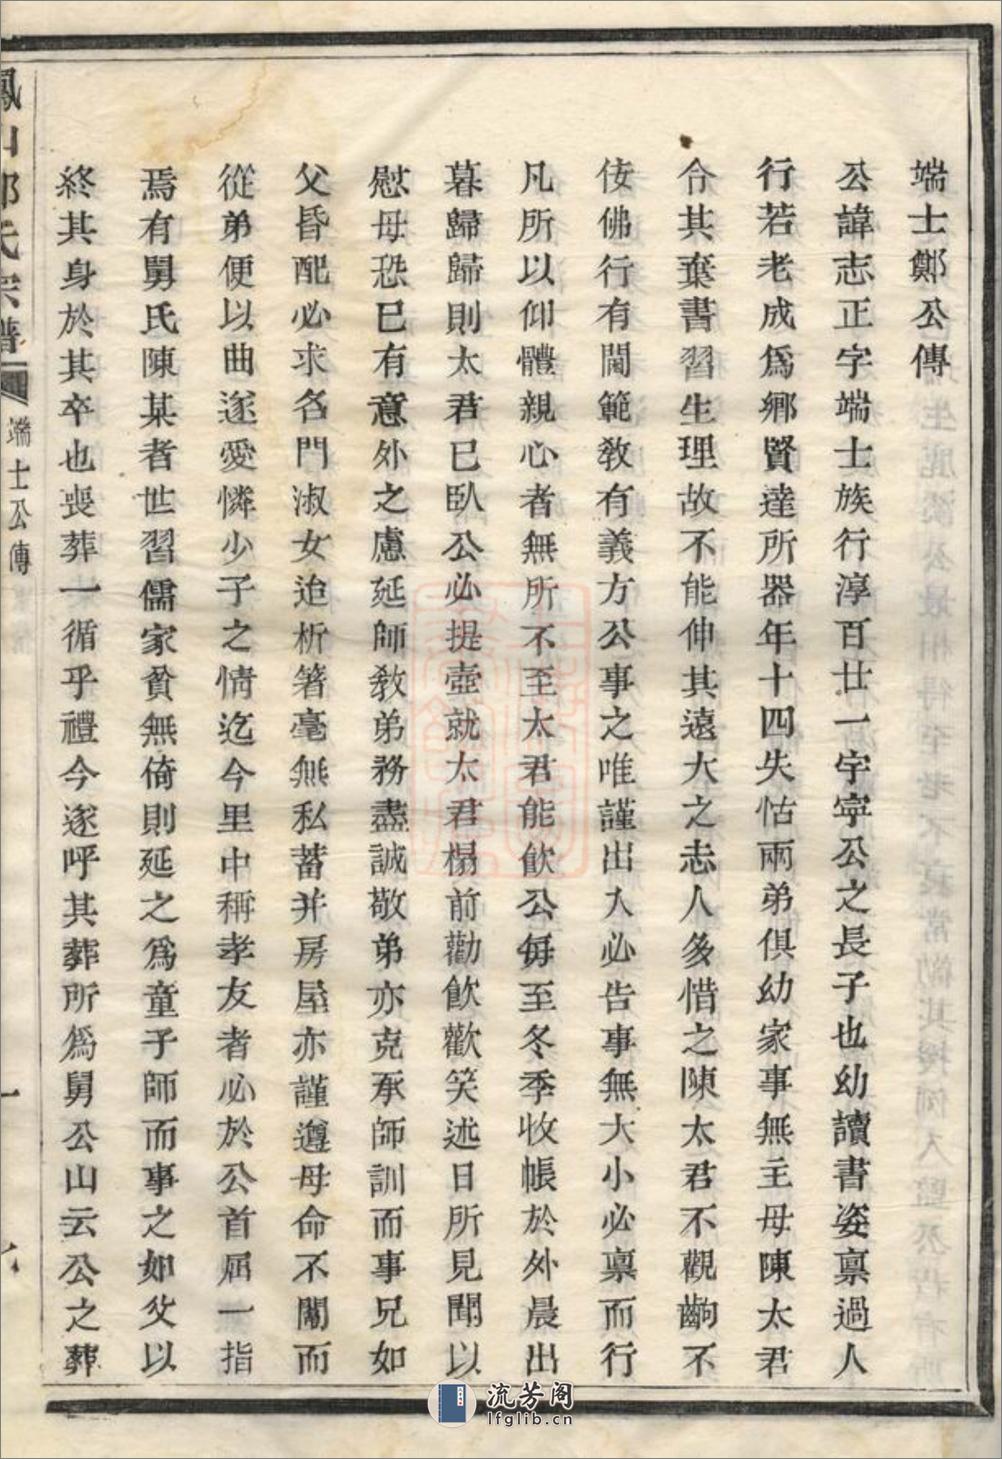 端士鄭公傳
公諱志正字端士族行淳百廿一字寧公之長子也幼讀書姿稟過人
行若老成爲鄉賢達所器年十四失怙兩弟俱幼家事無主母陳太君
令其棄書習生理故不能伸其遠大之志人多惜之陳太君不觀齣不
侫佛行有閫範敎有義方公事之唯謹出入必告事無大小必稟而行
凡所以仰體親心者無所不至太君能飮公每至冬季收帳於外晨出
暮歸歸則太君已臥公必提壺就太君榻前勸飮歡笑述日所見聞以
慰母恐已有意外之慮延師敎弟務盡誠敬弟亦克承師訓而事兄如
父昏配必求名門淑女迨析箸毫無私蓄并房屋亦謹遵母命不鬮而
從弟便以曲遂愛憐少子之情迄今里中稱孝友者必於公首屈一指
焉有舅氏陳某者世習儒家貧無倚則延之爲童子師而事之如父以
終其身於其卒也喪葬一循乎禮今遂呼其葬所爲舅公山云公之葬
鳳山鄭氏宗譜
端士公傳
一
流芳阁
lfglib.cn